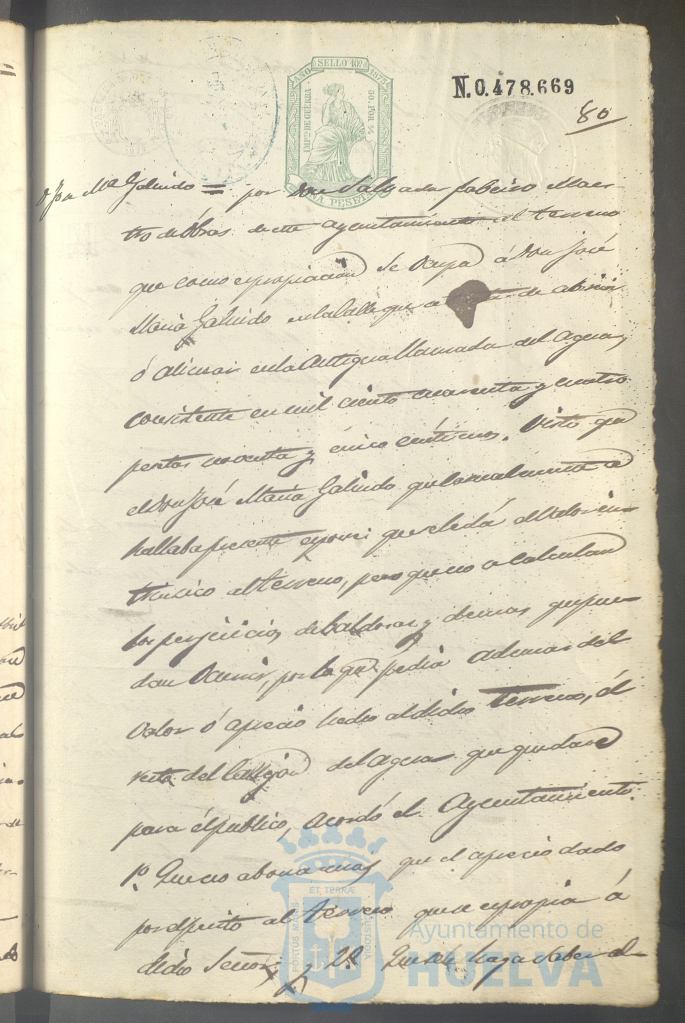 AÑO SELLO 10º 1877
IMPTO DE GUERRA 50 POR %
UNA PESETA
N.0.478.669
80
D. Jose Mª Galindo = por Don Salvador Maes-
tro de Obras de este Ayuntamiento el terreno
que como espropiacion se ocupa á Don José
Maria Galindo en la calle que de abrir
ó alinear en la Antigua llamada del Agua,
consistente en mil ciento cuarenta y cuatro
pesetas noventa y cinco céntimos. Visto que
el Don José Maria Galindo que casualmente se
hallaba presente espone que se le dá el valor in-
trinsico al terreno, pero que no se calculan
los perjuicios de baldosas y demas que pue-
dan venir, por lo que pedia ademas del
valor ó aprecio hecho al dicho terreno, él
resto del Callejon del agua que quedare
para él publico, acordó el Ayuntamiento.
1º Que no abona mas que el aprecio dado
por el perito al terreno que se espropia á
dicho Señor, y 2º Que se le haga saber al
ET TERRAE
PORTUS MARIS
CUSTODIA
Ayuntamiento de
HUELVA